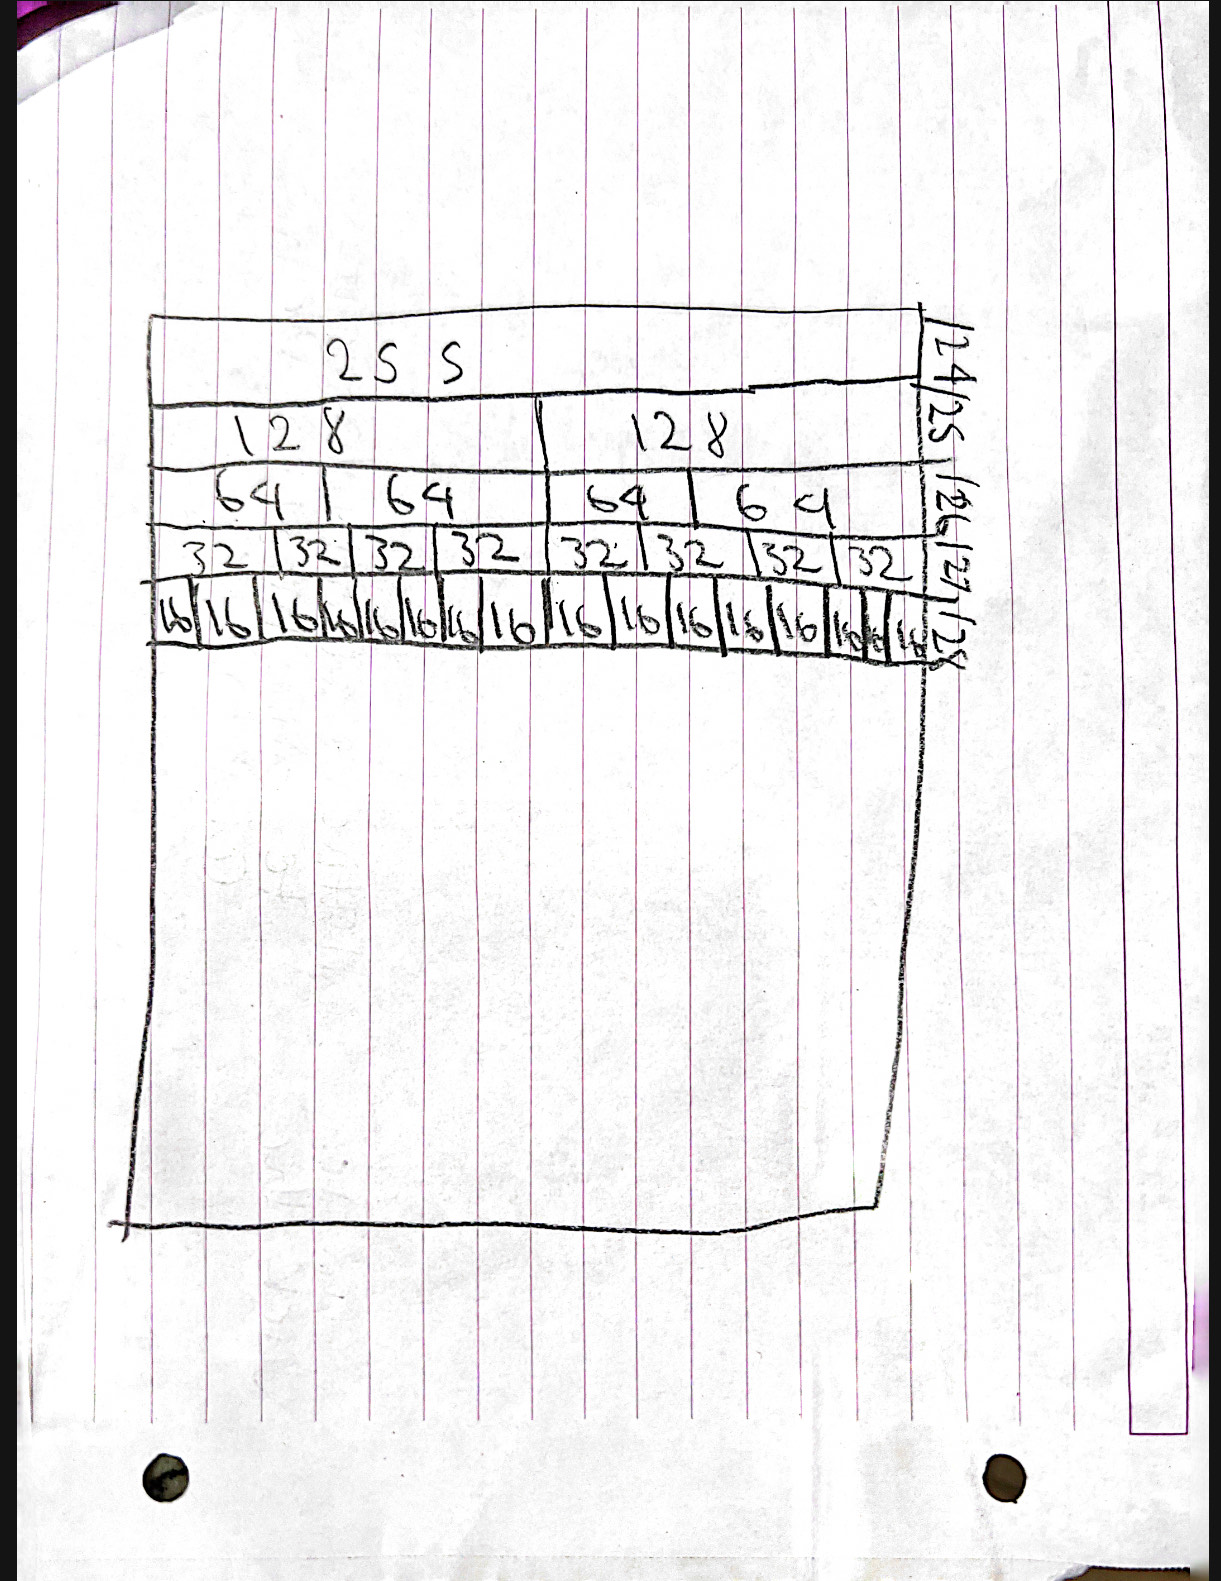 255 /24
128 128 /25
64 64 64 64 /26
32 32 32 32 32 32 32 32 /27
16 16 16 16 16 16 16 16 16 16 16 16 16 16 16 16 /28